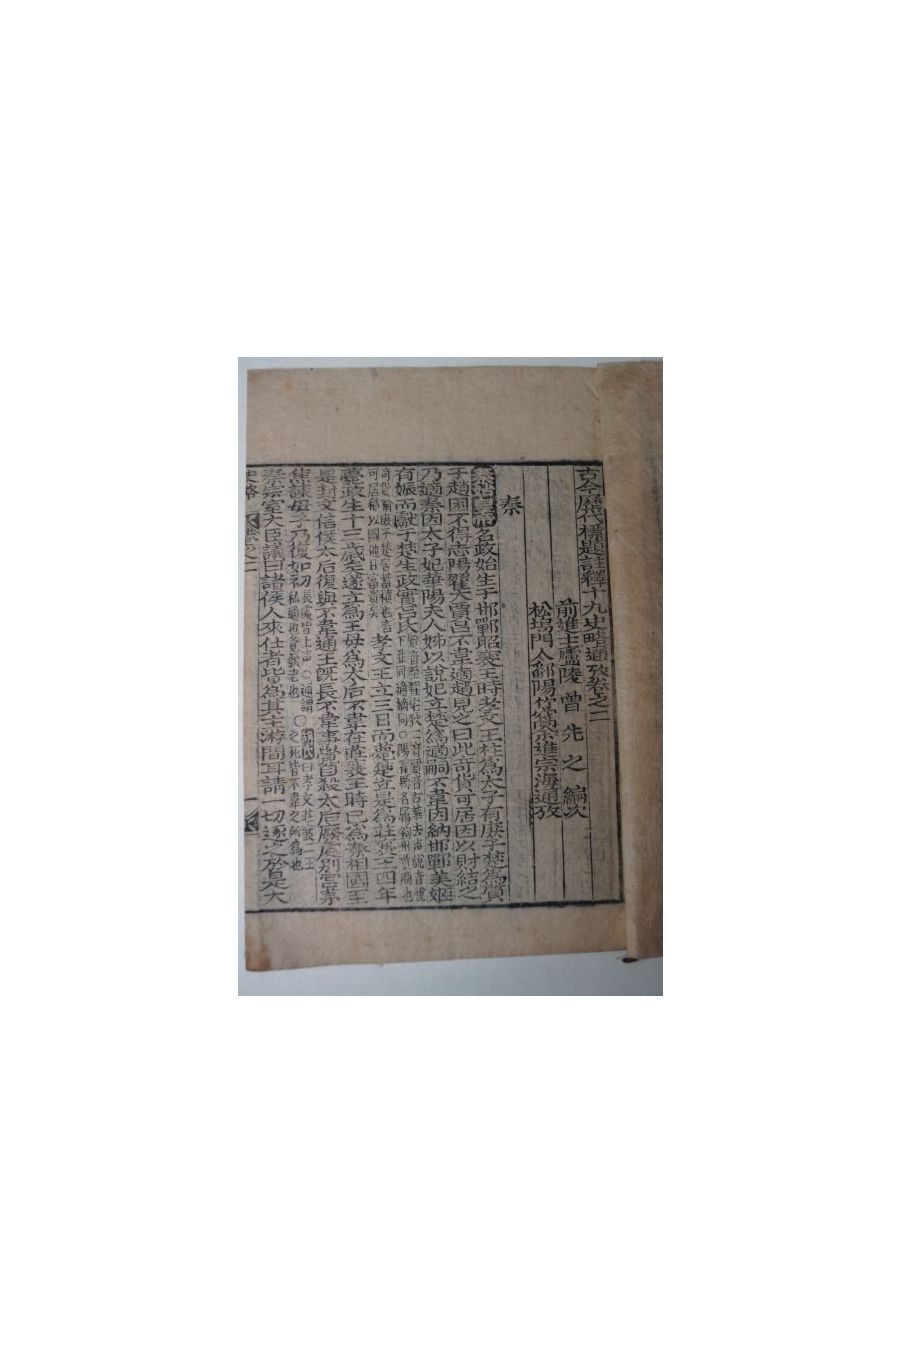 古今歷代標題註釋十九史略通攷卷之二
前進士廬陵曾先之編次
松塢門人鄱陽余進宗海通攷
秦
秦始皇帝名政始生于邯鄲昭襄王時孝文王柱爲太子有庶子楚爲質
于趙困不得志陽翟大賈呂不韋適趙見之曰此奇貨可居因以財結之
乃適秦因太子妃華陽夫人姊以說妃立楚爲適嗣不韋因納邯鄲美姬
有娠而獻于楚生政實呂氏
可居積以圖他日富貴矣
孝文王立三日而薨楚立是爲莊襄王四年
薨政生十三歲矣遂立爲王母爲太后不韋在莊襄王時已爲秦相國至
是封文信侯太后復與不韋通王旣長不韋事覺自殺太后廢處別宮茅
焦諫母子乃復如初
之死皆不韋之所爲也
秦宗室大臣議曰諸侯人來仕者皆爲其主游間耳請一切逐之於是大